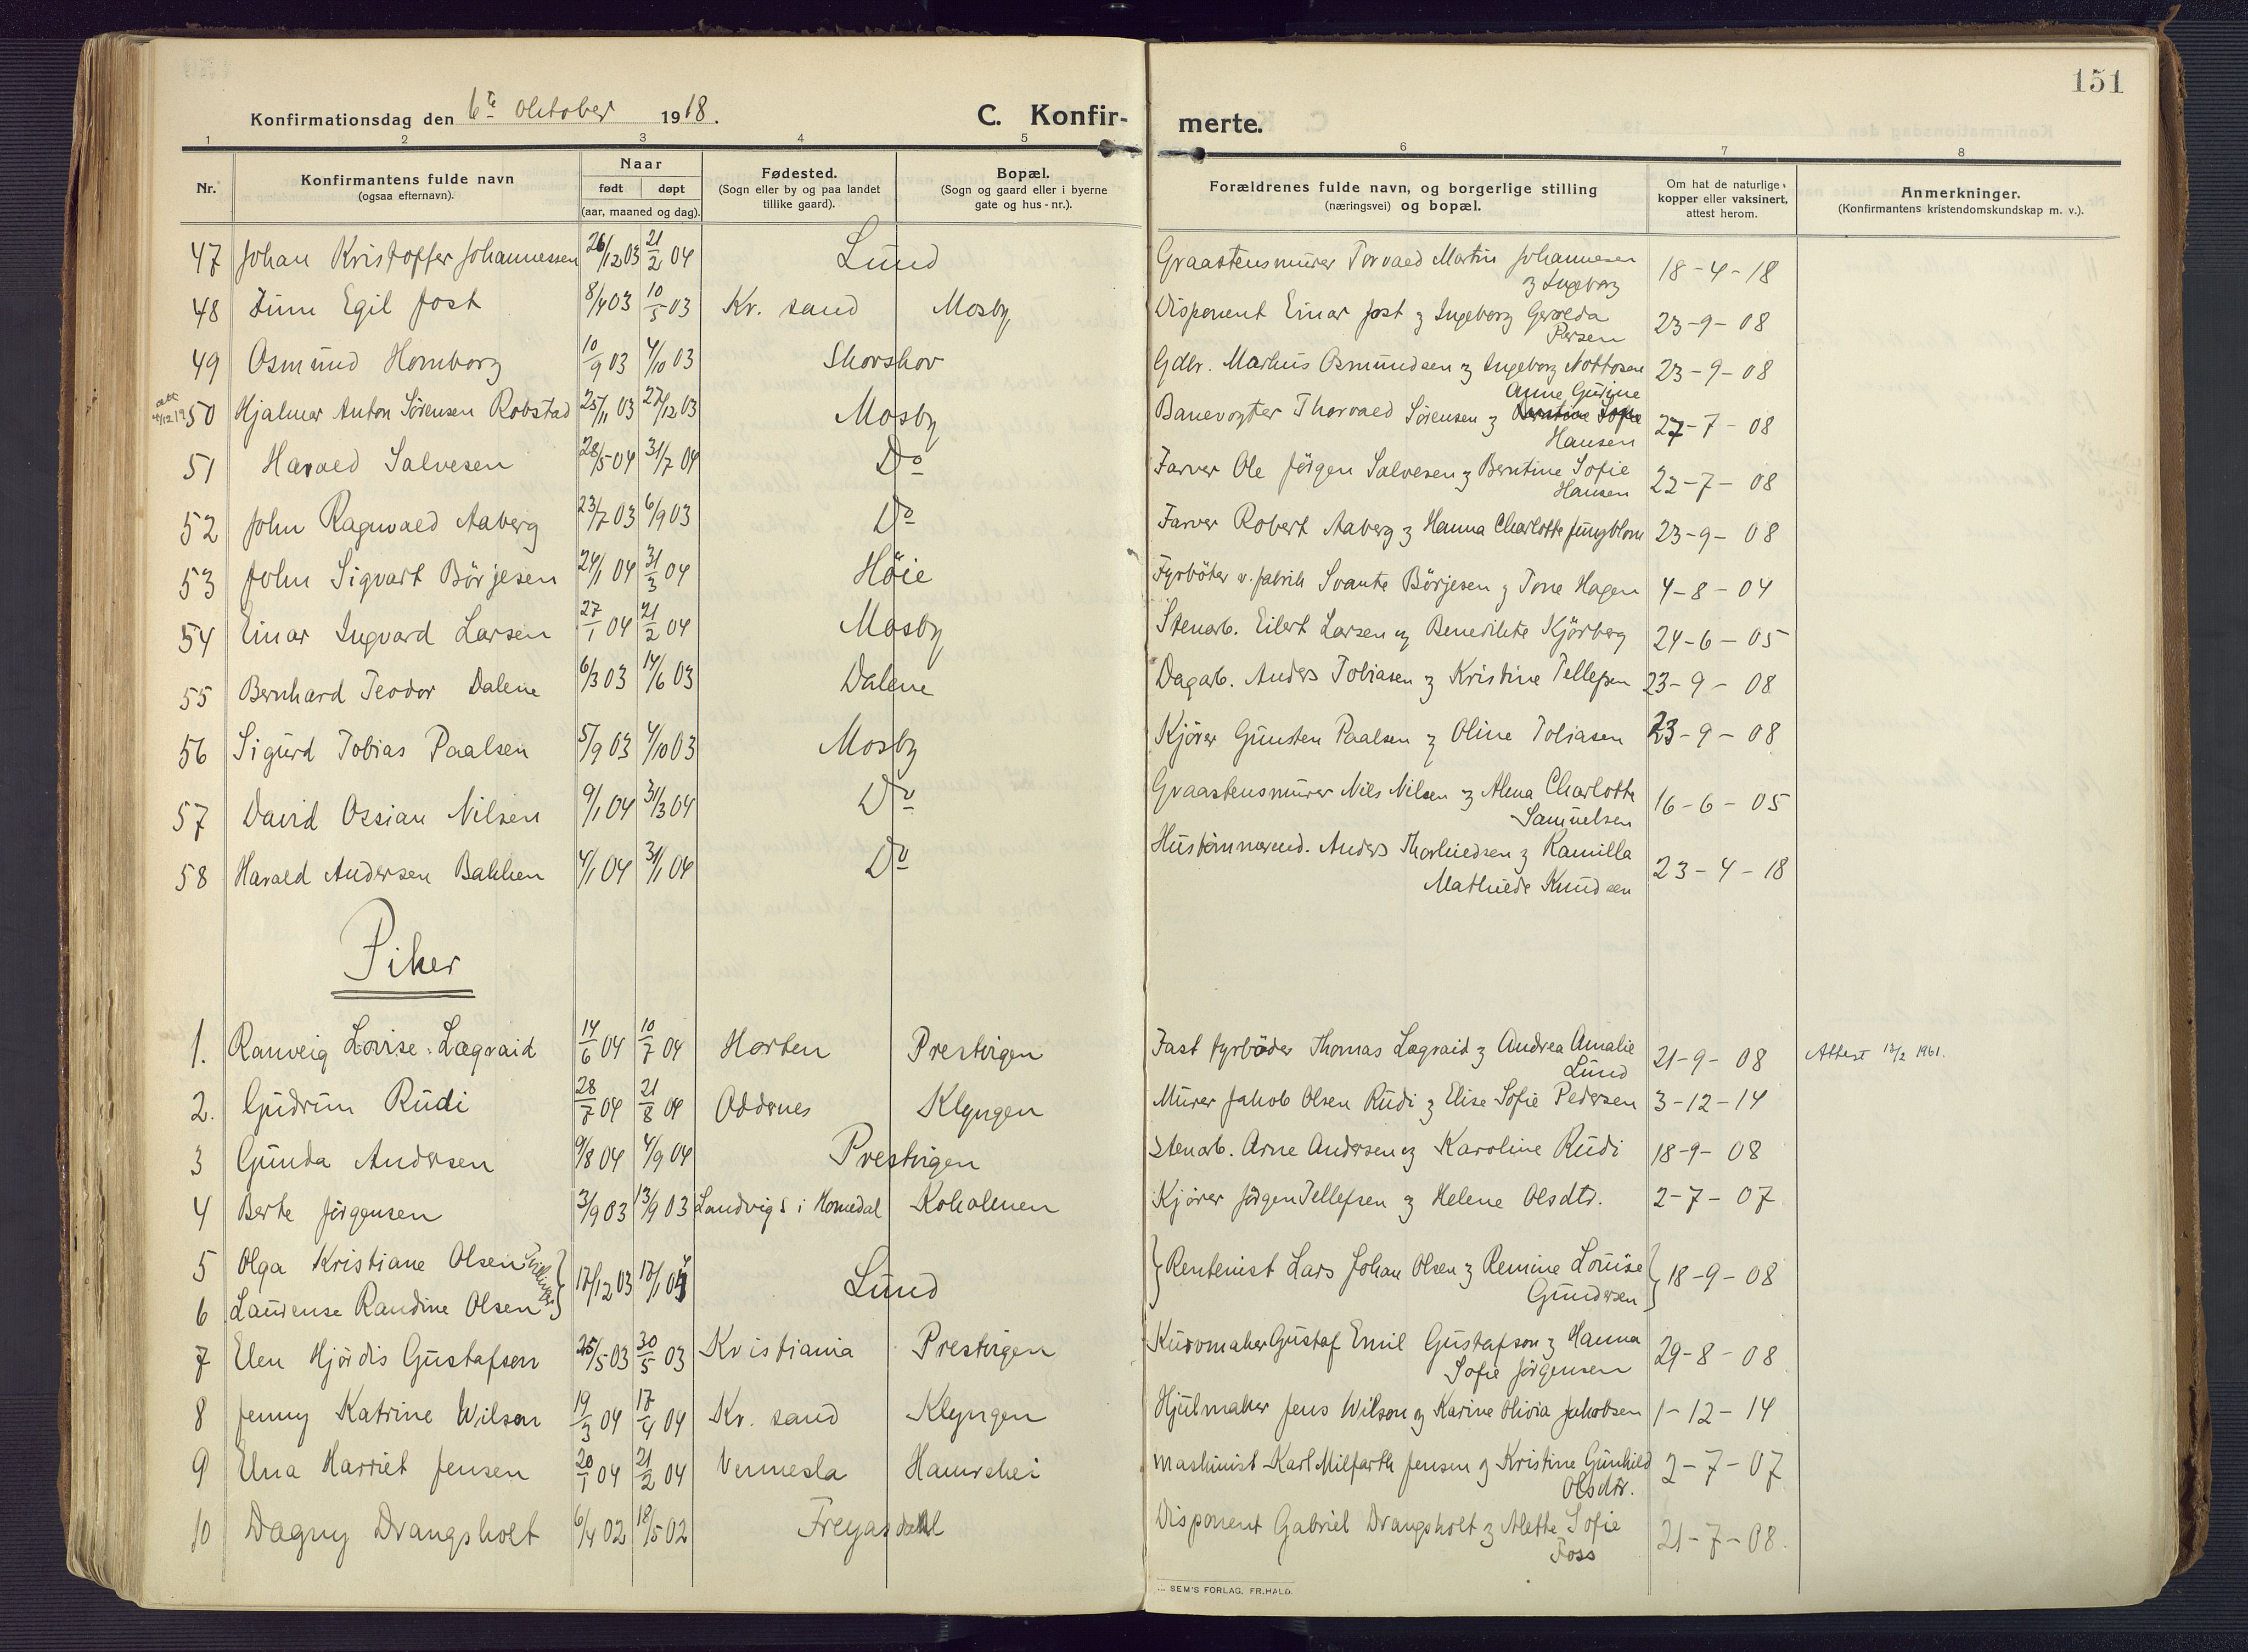 151
Konfirmationsdag den 6te Oktober 1918.
C. Konfir-merte.
1 2 3 4 5 6 7 8
Nr. Konfirmantens fulde navn (ogsaa efternavn). Naar født døpt (aar, maaned og dag). Fødested. (Sogn eller by og paa landet tillike gaard). Bopæl. (Sogn og gaard eller i byerne gate og hus-nr.). Forældrenes fulde navn, og borgerlige stilling (næringsvei) og bopæl. Om hat de naturlige kopper eller vaksinert, attest herom. Anmerkninger. (Konfirmantens kristendomskundskap m. v.).
47 Johan Kristoffer Johannessen 26/12 03 21/2 04 Lund Graastensmurer Torvald Martin Johannesen og Ingeborg 18-4-18
48 Finn Egil Jost 8/4 03 10/5 03 Kr. sand Mosby Disponent Einar Jost og Ingeborg Gerolda Persen 23-9-08
49 Osmund Homborg 10/9 03 4/10 03 Skorskov Gdbr. Markus Osmundsen og Ingeborg Nottosen 23-9-08
50 Hjalmar Anton Sørensen Robstad 25/11 03 27/12 03 Mosby Banevogter Thorvald Sørensen og Anne Gurine Berntine Sofie Hansen 27-7-08
51 Harald Salvesen 28/5 04 31/7 04 Do Farver Ole Jörgen Salvesen og Berntine Sofie Hansen 22-7-08
52 John Ragnvald Aaberg 23/7 03 6/9 03 Do Farver Robert Aaberg og Hanna Charlotte Jungblom 23-9-08
53 John Sigvart Börjesen 24/1 04 31/3 04 Höie Fyrböter v. fabrik Svante Börjesen og Tone Hagen 4-8-04
54 Einar Ingvard Larsen 27/1 04 21/2 04 Mosby Stenarb. Eilert Larsen og Benedikte Kjörberg 24-6-05
55 Bernhard Teodor Dalene 6/3 03 14/6 03 Dalene Dagarb. Anders Tobiasen og Kristine Tellefsen 23-9-08
56 Sigurd Tobias Paalsen 5/9 03 4/10 03 Mosby Kjörer Gunsten Paalsen og Oline Tobiasen 23-9-08
57 David Ossian Nilsen 9/1 04 31/3 04 Do Graastensmurer Nils Nilsen og Alma Charlotte Samuelsen 16-6-05
58 Harald Andersen Bakken 4/1 04 31/1 04 Do Hustömmermd. Anders Thorkildsen og Kamilla Mathilde Knudsen 23-4-18
Piker
1. Ranveig Lovise Lægraid 14/6 04 10/7 04 Horten Prestvigen Fast fyrböder Thomas Lægraid og Andrea Amalie Lund 21-9-08 Attest 13/2 1961.
2. Gudrun Rudi 28/7 04 21/8 04 Oddernes Klyngen Murer Jakob Olsen Rudi og Elise Sofie Pedersen 3-12-14
3 Gunda Andersen 9/8 04 4/9 04 Prestvigen Stenarb. Arne Andersen og Karoline Rudi 18-9-08
4 Berte Jörgensen 3/9 03 13/9 03 Landvig s i Homedal Kokolmen Kjörer Jörgen Tellefsen og Helene Olsdtr. 2-7-07
5 Olga Kristiane Olsen
6 Laurense Randine Olsen } Tvillinger 17/12 03 17/1 04 Lund Rentenist Lars Johan Olsen og Remine Louise Gundersen 18-9-08
7 Elen Hjördis Gustafsen 25/5 03 30/5 03 Kristiania Prestvigen Kurvmaker Gustaf Emil Gustafson og Hanna Sofie Jörgensen 29-8-08
8 Jenny Katrine Wilson 19/3 04 17/4 04 Kr. sand Klyngen Hjulmaker Jens Wilson og Karine Olivia Jakobsen 1-12-14
9 Una Harriet Jensen 20/1 04 21/2 04 Vennesla Hamrehei Maskinist Karl Milfarth Jensen og Kristine Gunhild Olsdtr. 2-7-07
10 Dagny Drangsholt 6/4 02 18/5 02 Freyasdahl Disponent Gabriel Drangsholt og Alette Sofie Foss 21-7-08.
SEM'S FORLAG, FR.HALD.